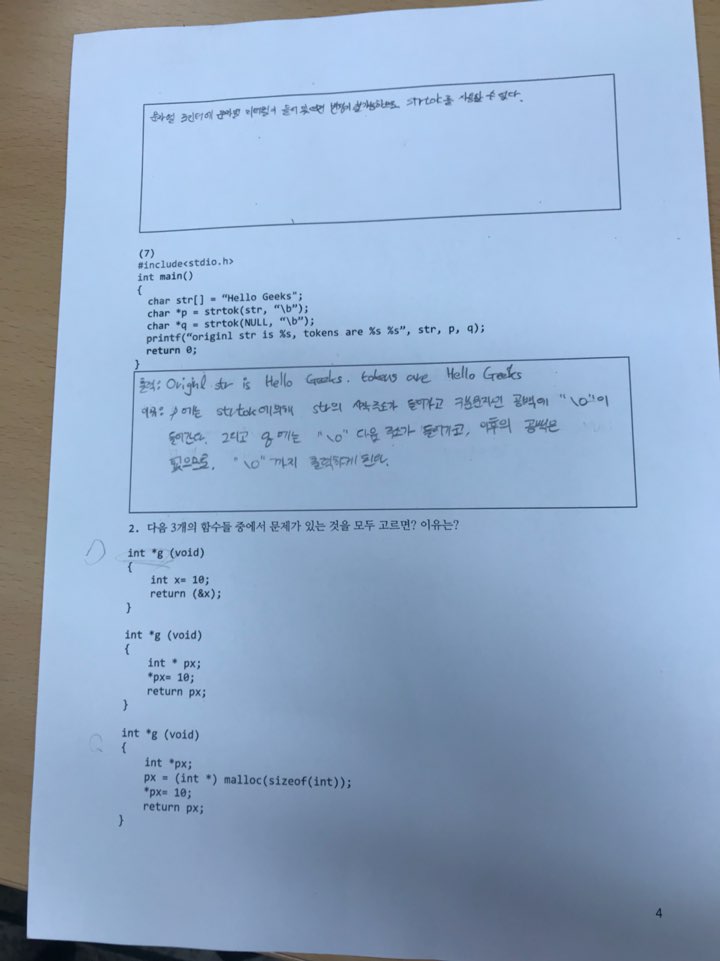 문자열 포인터에 문자열 리터럴이 들어 변경이 불가능하므로 strtok를 사용할 수 없다.
(7)
#include<stdio.h>
int main()
{
char str[] = "Hello Geeks";
char *p = strtok(str, "\b");
char *q = strtok(NULL, "\b");
printf("originl str is %s, tokens are %s %s", str, p, q);
return 0;
}
출력: Originl str is Hello Geeks. tokens are Hello Geeks
이유: p에는 strtok에의해 str의 시작주소가 들어가고 공백에 "\0"이
들어간다. 그리고 q에는 "\0" 다음 주소가 들어가고, 이후의 공백은
없으므로, "\0"까지 출력하게 된다.
2. 다음 3개의 함수들 중에서 문제가 있는 것을 모두 고르면? 이유는?
int *g (void)
{
int x= 10;
return (&x);
}
int *g (void)
{
int * px;
*px= 10;
return px;
}
int *g (void)
{
int *px;
px = (int *) malloc(sizeof(int));
*px= 10;
return px;
}
4